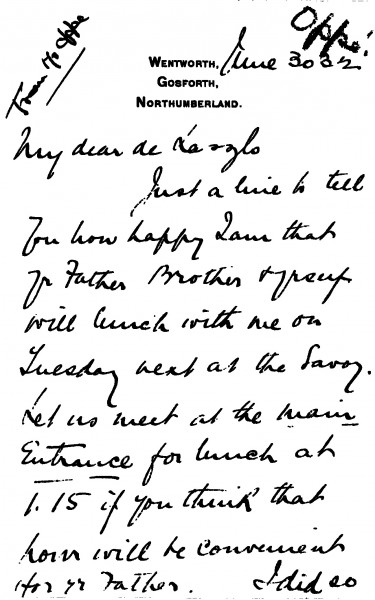 Oppé
From Mr Oppe
Wentworth, June 30 32
Gosforth,
Northumberland.
My dear de László
Just a line to tell
You how happy I am that
yr Father Brother & yrself
will lunch with me on
Tuesday next at the Savoy.
Let us meet at the main
Entrance for lunch at
1.15 if you think that
hour will be convenient
for yr Father. I did so